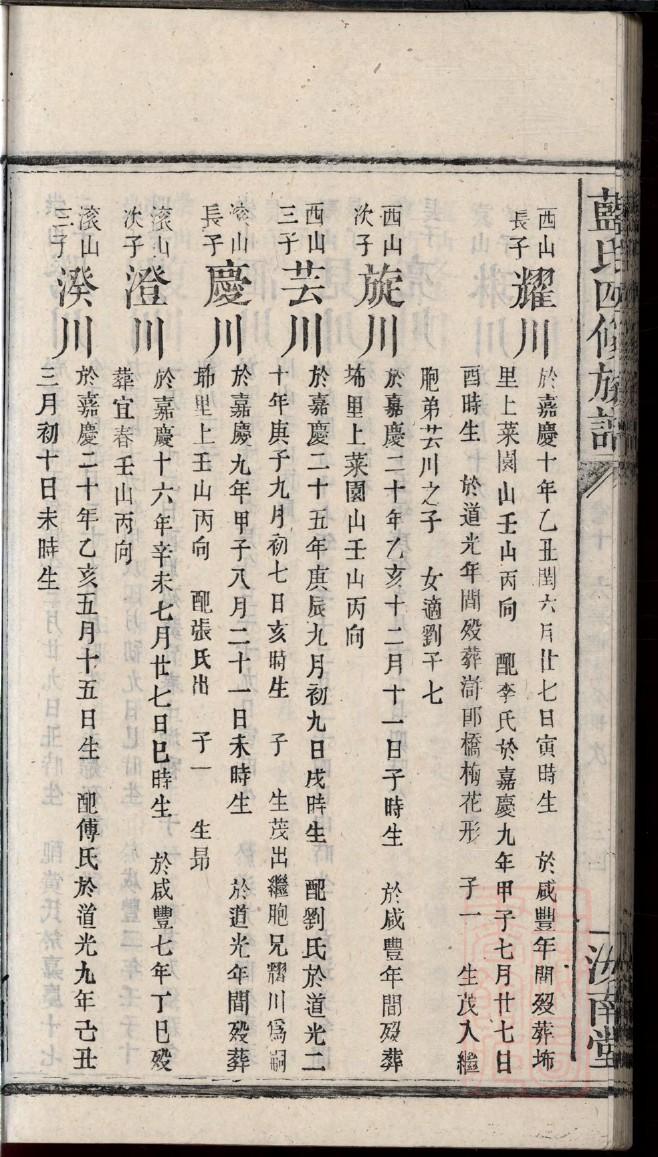 藍氏四修族譜
汝南堂
西山長子 耀川 於嘉慶十年乙丑閏六月廿七日寅時生 於咸豐年間歿葬㘵
里上菜園山壬山丙向 配李氏於嘉慶九年甲子七月廿七日
酉時生 於道光年間歿葬滸郎橋梅花形 子一 生茂入繼
胞弟芸川之子 女適劉干七
西山次子 旋川 於嘉慶二十年乙亥十二月十一日子時生 於咸豐年間歿葬
㘵里上菜園山壬山丙向
西山三子 芸川 於嘉慶二十五年庚辰九月初九日戌時生 配劉氏於道光二
十年庚子九月初七日亥時生 子 生茂出繼胞兄耀川為嗣
滚山長子 慶川 於嘉慶九年甲子八月二十一日未時生 於道光年間歿葬
㘵里上壬山丙向 配張氏出 子一 生昴
滚山次子 澄川 於嘉慶十六年辛未七月廿七日巳時生 於咸豐七年丁巳歿
葬宜春壬山丙向
滚山三子 湀川 於嘉慶二十年乙亥五月十五日生 配傅氏於道光九年己丑
三月初十日未時生